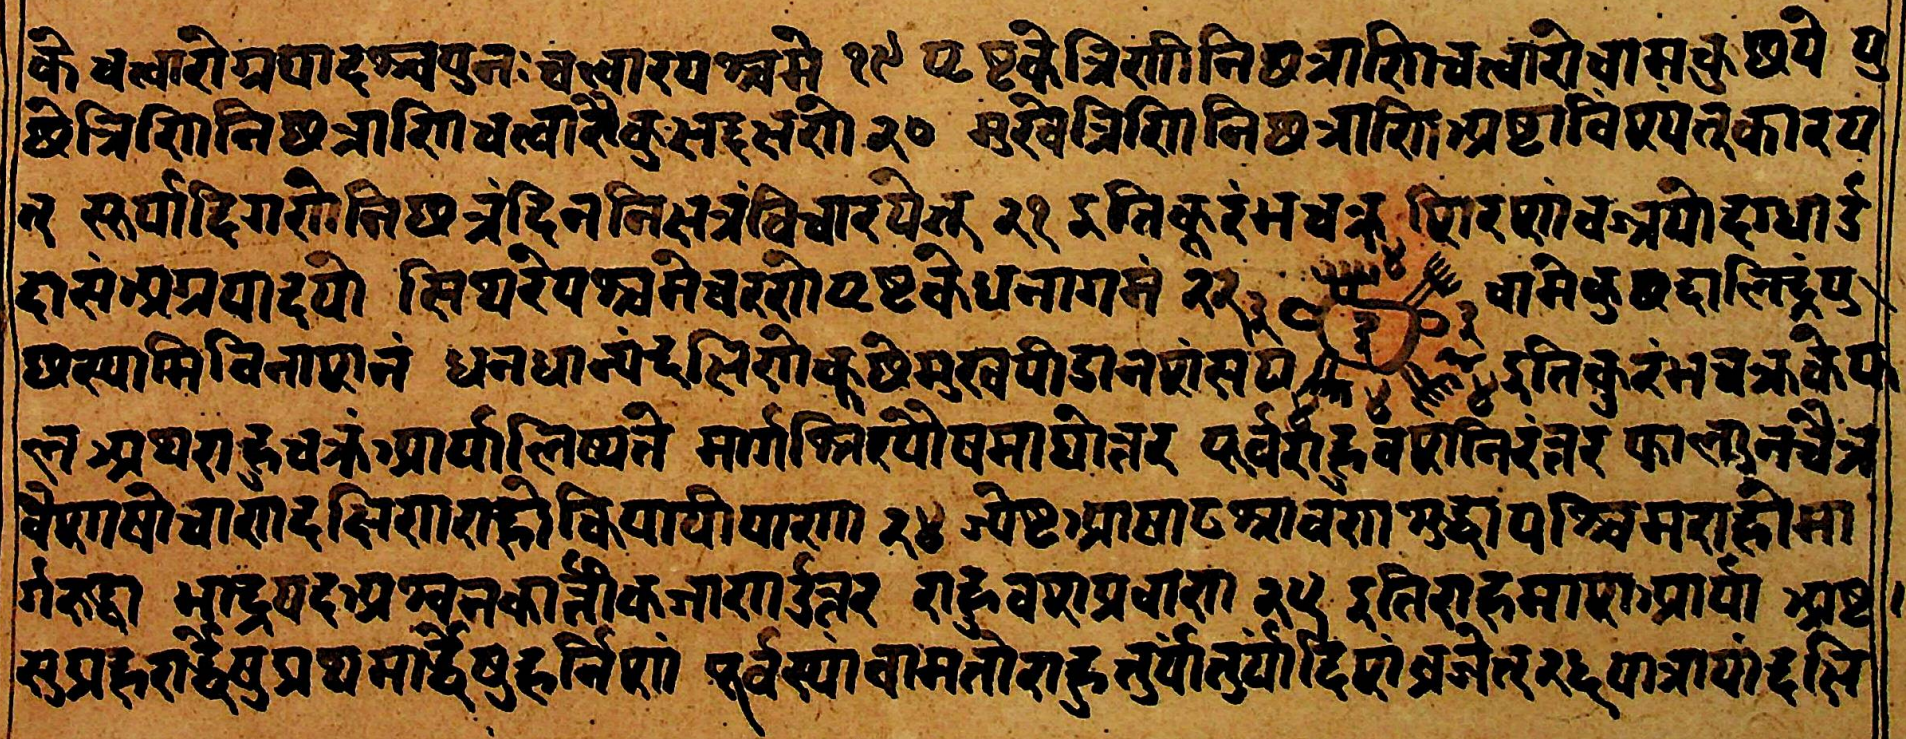 के चत्वारोग्रपादश्चपुनः चत्वारपश्चमे १९ पृष्टकेत्रिणीनिछत्राणिचत्वारोवामकुछये पु
छेत्रिणिनिछत्राणिचत्वारौकुक्षदक्षणे २० मुखेत्रिणिनिछत्राणिअष्टाविंशयत्कारय
त् सूर्यादिगणेनिछत्रंदिननिक्षत्रंविचारयेत् २१ इतिकूरंमचक्र
दासंअग्रपादयो स्थिथरेपश्चमेचरणेपृष्टकेधनागमं २२ वामेकुछदालिद्रंपु
छस्यामिविनाशनं धनधान्यंदक्षिणेकूछेमुखपीडानशंसय इतिकुरंमचक्रकेफ
ल अथराहुचक्रंप्रार्यालिष्यते मार्गश्रिरपौषमाघोत्तर पूर्वराहुवशनिरंत्तर फाल्गुनचैत्र
वैशाषोचाणदक्षिणराहोकियायीयाण २४ ज्येष्टआषाढश्रावणशुद्धापश्चिमराहोमा
र्गरूद्धा भाद्रपदअश्वनकार्त्तीकजाणउत्तर राहुवशप्रवाण २५ इतिराहमाशप्रार्या अष्ट
सुप्रहरार्द्धेषुप्रथमार्द्धेषुहर्निशं पूर्वस्यांवामतोराहुतुर्यांतुर्यांदिशंव्रजेत् २६ यात्रायांदक्षि